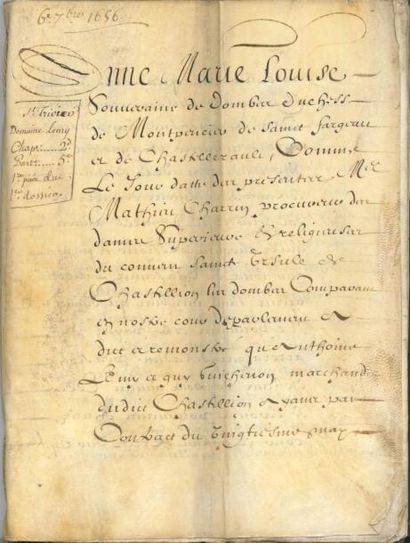 6e 7bre 1656
St Trivier
Domaine Lemy
Chap..... 2d
Part..... 5e
1ere pièce du
1er dossier
Anne Marie Louise
Souveraine de Dombes Duchess
de Montpencier de Sainct Fargeau
et de Chastellerault, Comme
Le Jour datte des presentes Me
Mathieu Charrin procureur des
dames Superieure & religieuses
du convent Sainct Ursule de
Chastillion les dombes Comparant
en nostre cour de parlement a
dict et remonstré que Anthoine
Lemy et guy guicheron marchand
dudict Chastillion ayant par
Contract du vingtiesme may